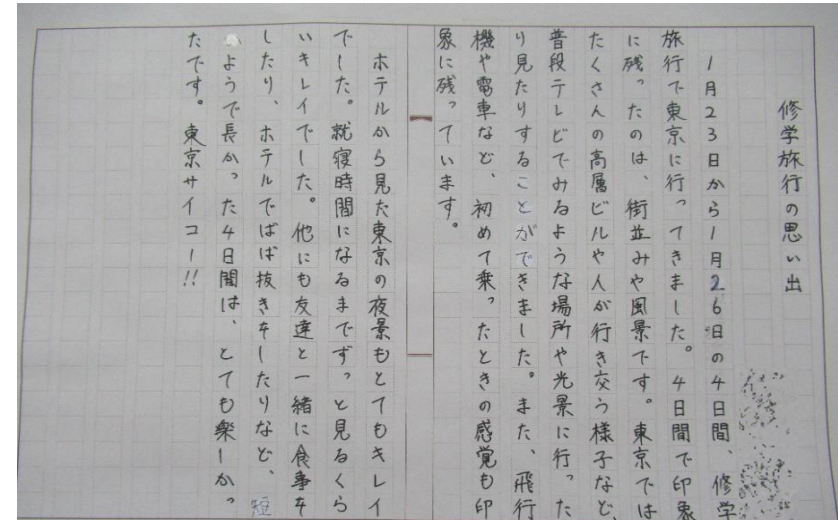 修学旅行の思い出
1月23日から1月26日の4日間、修学
旅行で東京に行ってきました。4日間で印象
に残ったのは、街並みや風景です。東京では
たくさんの高層ビルや人が行き交う様子など、
普段テレビでみるような場所や光景に行った
り見たりすることができました。また、飛行
機や電車など、初めて乗ったときの感覚も印
象に残っています。
ホテルから見た東京の夜景もとてもキレイ
でした。就寝時間になるまでずっと見るくら
いキレイでした。他にも友達と一緒に食事を
したり、ホテルでばば抜きをしたりなど、短
いようで長かった4日間は、とても楽しかっ
たです。東京サイコー!!